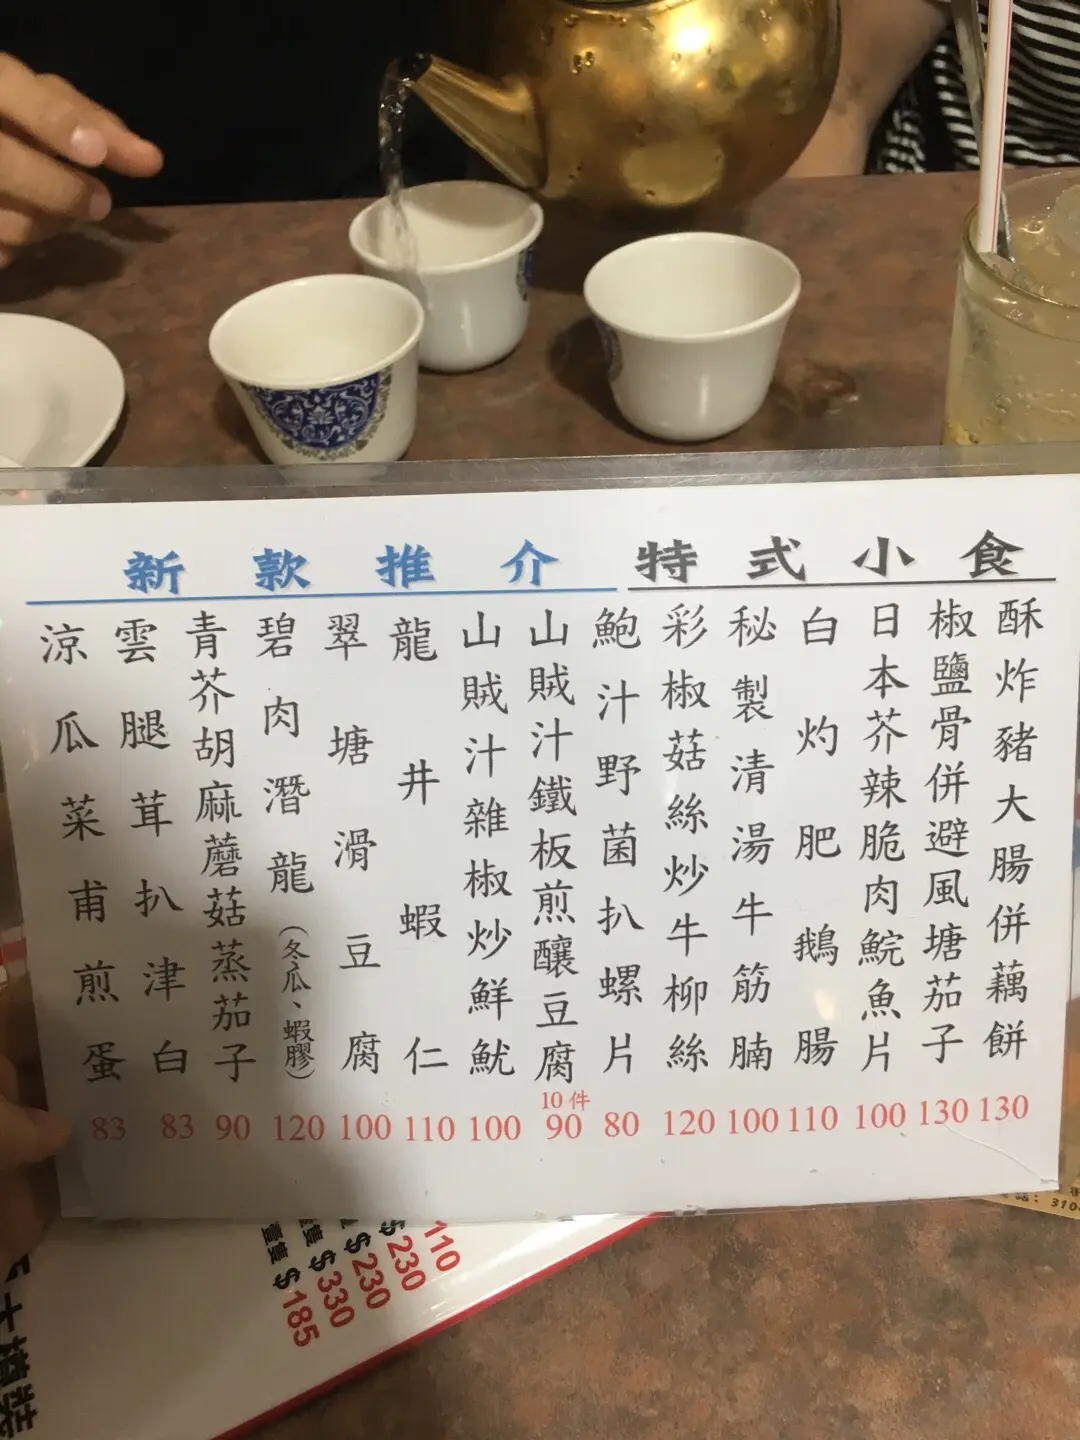 特式小食
酥炸豬大腸併藕餅 130
椒鹽骨併避風塘茄子 130
日本芥辣脆肉鯇魚片 100
白灼肥鵝腸 110
秘製清湯牛筋腩 100
彩椒菇絲炒牛柳絲 120
新款推介
鮑汁野菌扒螺片 80
山賊汁鐵板煎釀豆腐 10件 90
山賊汁雜椒炒鮮魷 100
龍井蝦仁 110
翠塘滑豆腐 100
碧肉潛龍(冬瓜、蝦膠) 120
青芥胡麻蘑菇蒸茄子 90
雲腿茸扒津白 83
涼瓜菜甫煎蛋 83
110
$230
$230
隻 $330
壹隻 $185
310